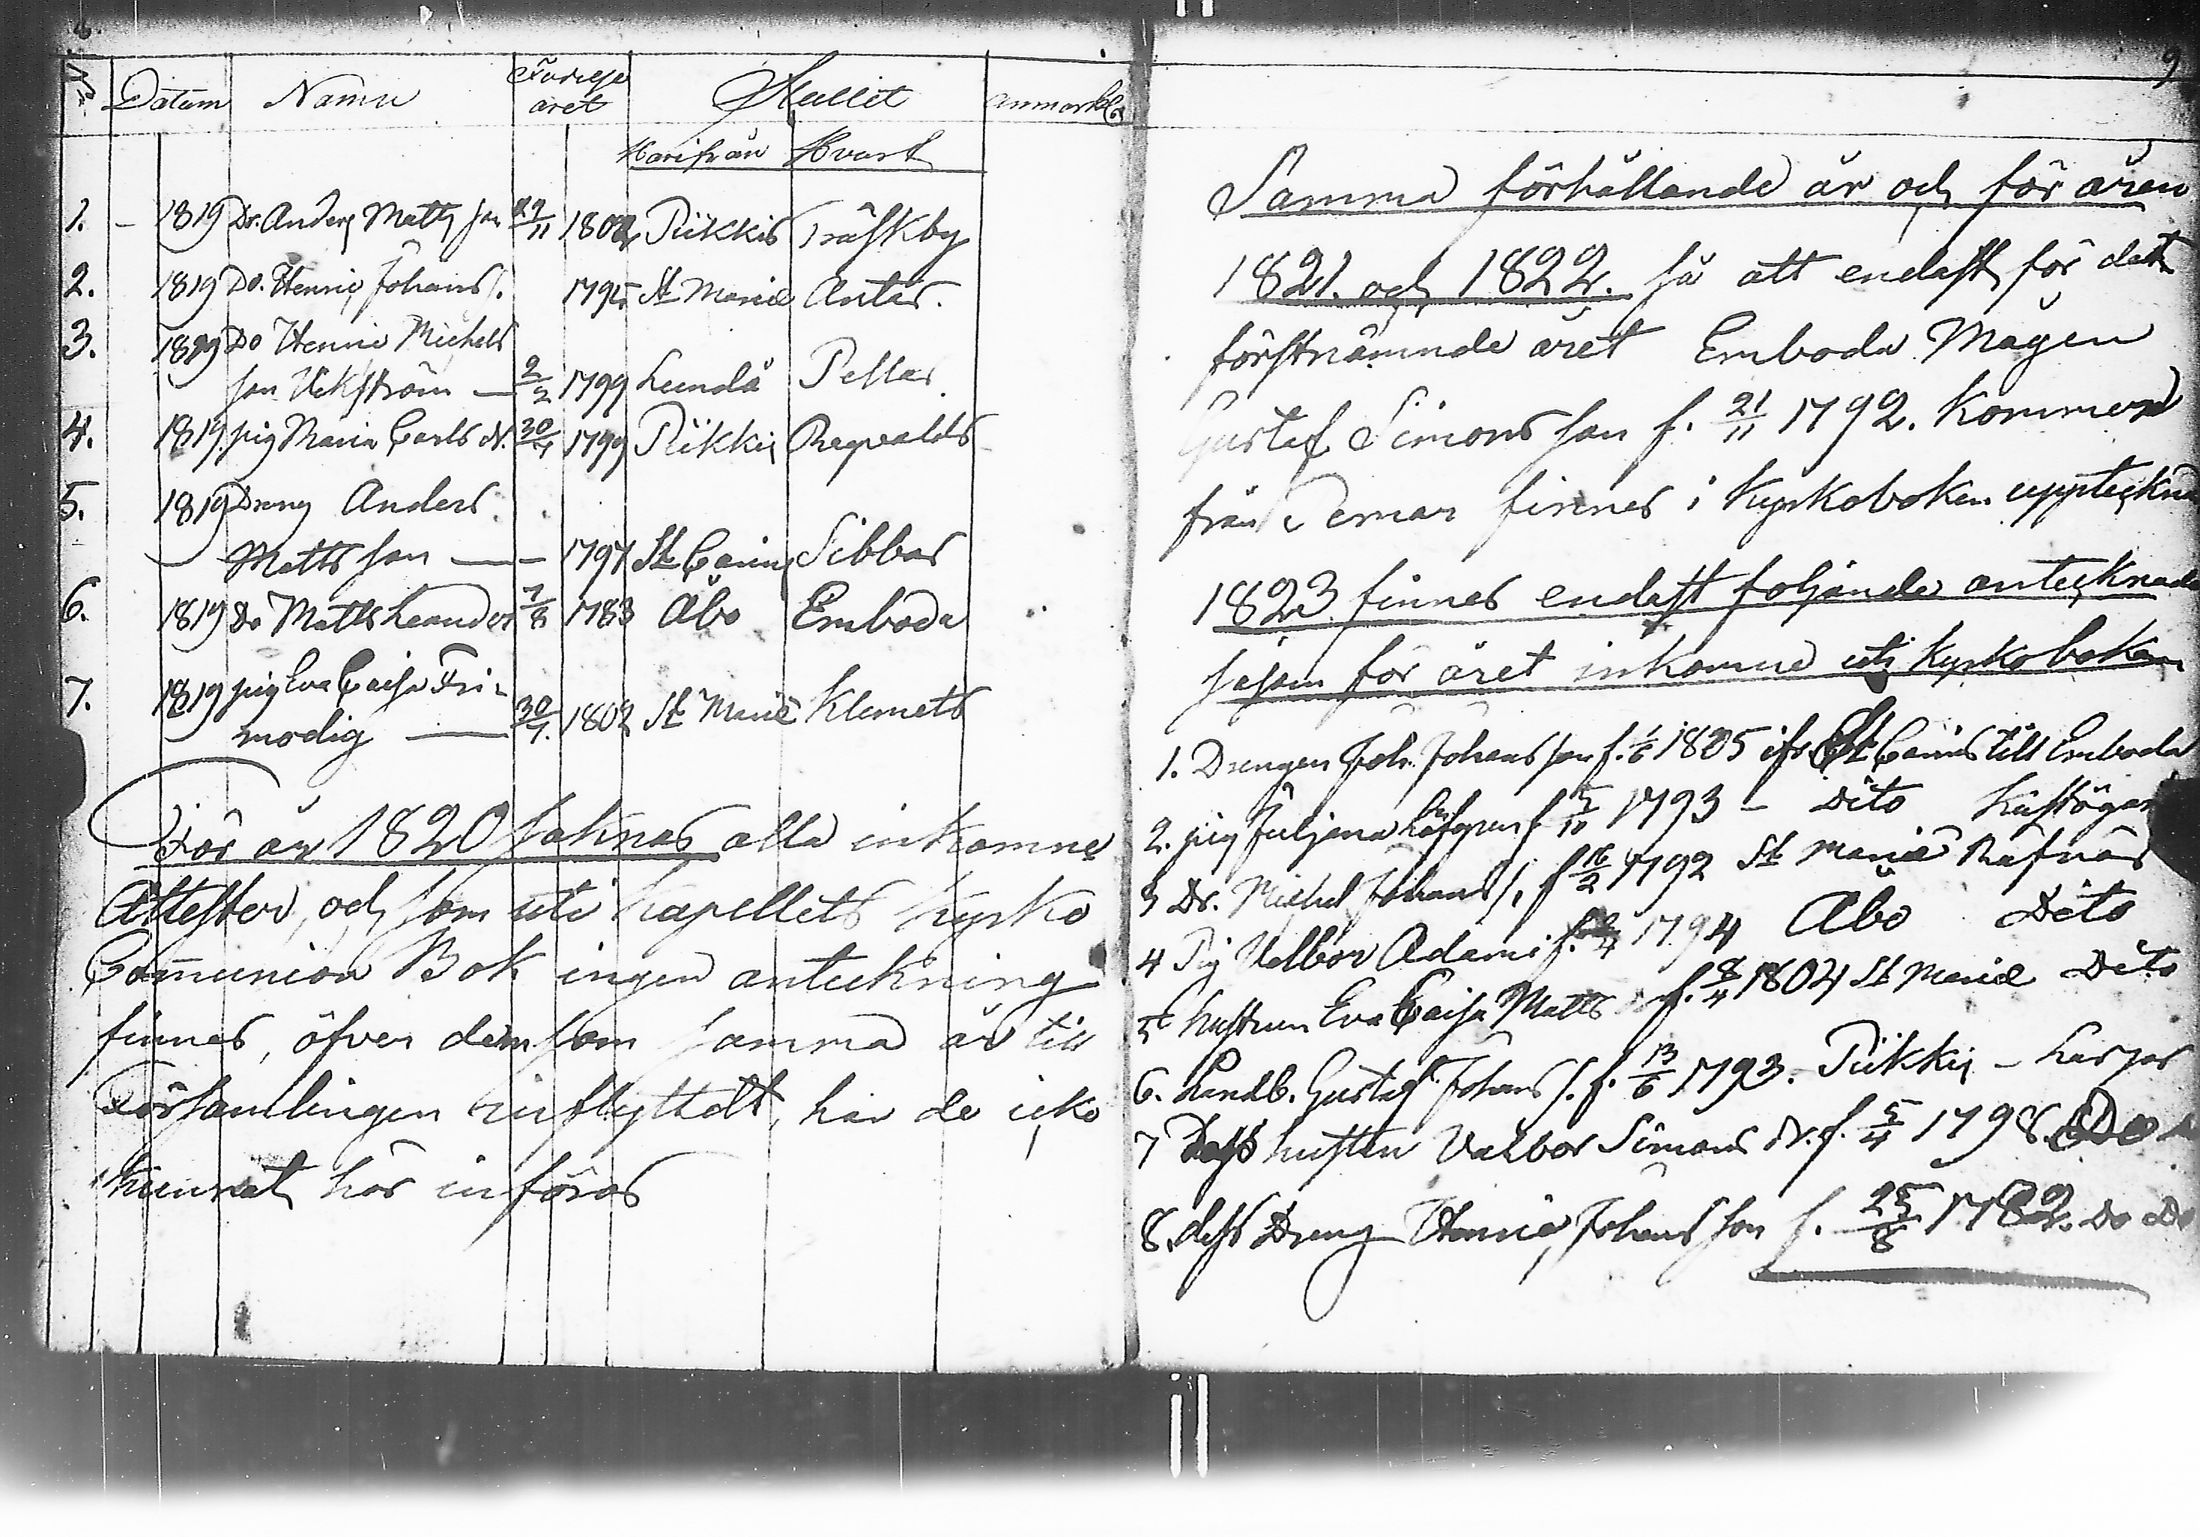 Datum Namn Födelse året Stället anmärkl.
Hvarifrån Hvart
1. – 1819 Dr. Anders Matts son 27/11 1802 Piikkis Träskby
2. 1819 Do. Henric Johans s. 1795 St Mariæ Antas.
3. 1819 Do Henric Michels
son Vickström — 2/2 1799 Lundå Pellas
4. 1819 pig Maria Carls dr. 1799 Piikkis Regvalds
5. 1819 Dreng Anders
Matts son — – 1797 St Carins Sibbas
6. 1819 Do Matts Leander 7/8 1783 Åbo Emboda
7. 1819 pig Eva Caisa Fri-
modig — 30/7. 1802 St Mariæ Klemets
För år 1820 saknas alla inkomne
Attester, och som uti Kapellets Kyrko
Communion Bok ingen anteckning
finnes, öfver dem som samma år till
Församlingen inflyttat, har de icke
kunnat här införas
9
Samma förhållande är och för åren
1821. och 1822. så att endast för det
förstnämnde året Emboda Mågen
Gustaf Simons son f. 21/11 1792. Kommen
från Pemar finnes i Kyrkoboken upptecknad
1823 finnes endast följande antecknade
såsom för året inkomne uti Kyrkoboken
1. Drengen Joh. Johans son f. 1/6 1805 ifr. St Carins till Emboda
2. pig Juljana Löfgren f. 5/10 1793 – Dito
3 Dr. Michel Johans s. f 16/2 1792 St Mariæ Rafnäs
4 Pig Valbor Adams f. 1794 Åbo Dito
5 hustrun Eva Caisa Matts f. 8/4 1804 St Mariæ Dito
6. Landb. Gustaf Johans s. f. 13/6 1793. Piikkis – Larpas
7 Dess hustru Valbor Simons dr. f. 5/4 1798. Do
8. dess Dreng Henric Johans son f. 25/8 1782. Do Do